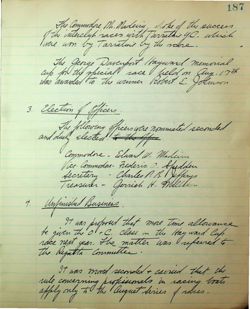 187
The Commodore Mr. Madeira, spoke of the success
of the interclub races with Tarratine Y.C. which
were won by Tarratine by the score.
The George Davenport Hayward memorial
cup for the special race held on Aug. 17th
was awarded to the winner Robert L. Johnson
3. Election of Officers
The following officers were nominated seconded
and duly elected
Commodore - W. Madeira
Vice Commodore -
Secretary - Charles
Treasurer -
4. Unfinished Business
It was proposed that more time allowance
be given the "O" C. class in the Hayward Cup
race next year. The matter was referred to
the Regatta Committee.
It was moved seconded & carried that the
rule concerning professionals in racing boats
apply only to the August series of races.